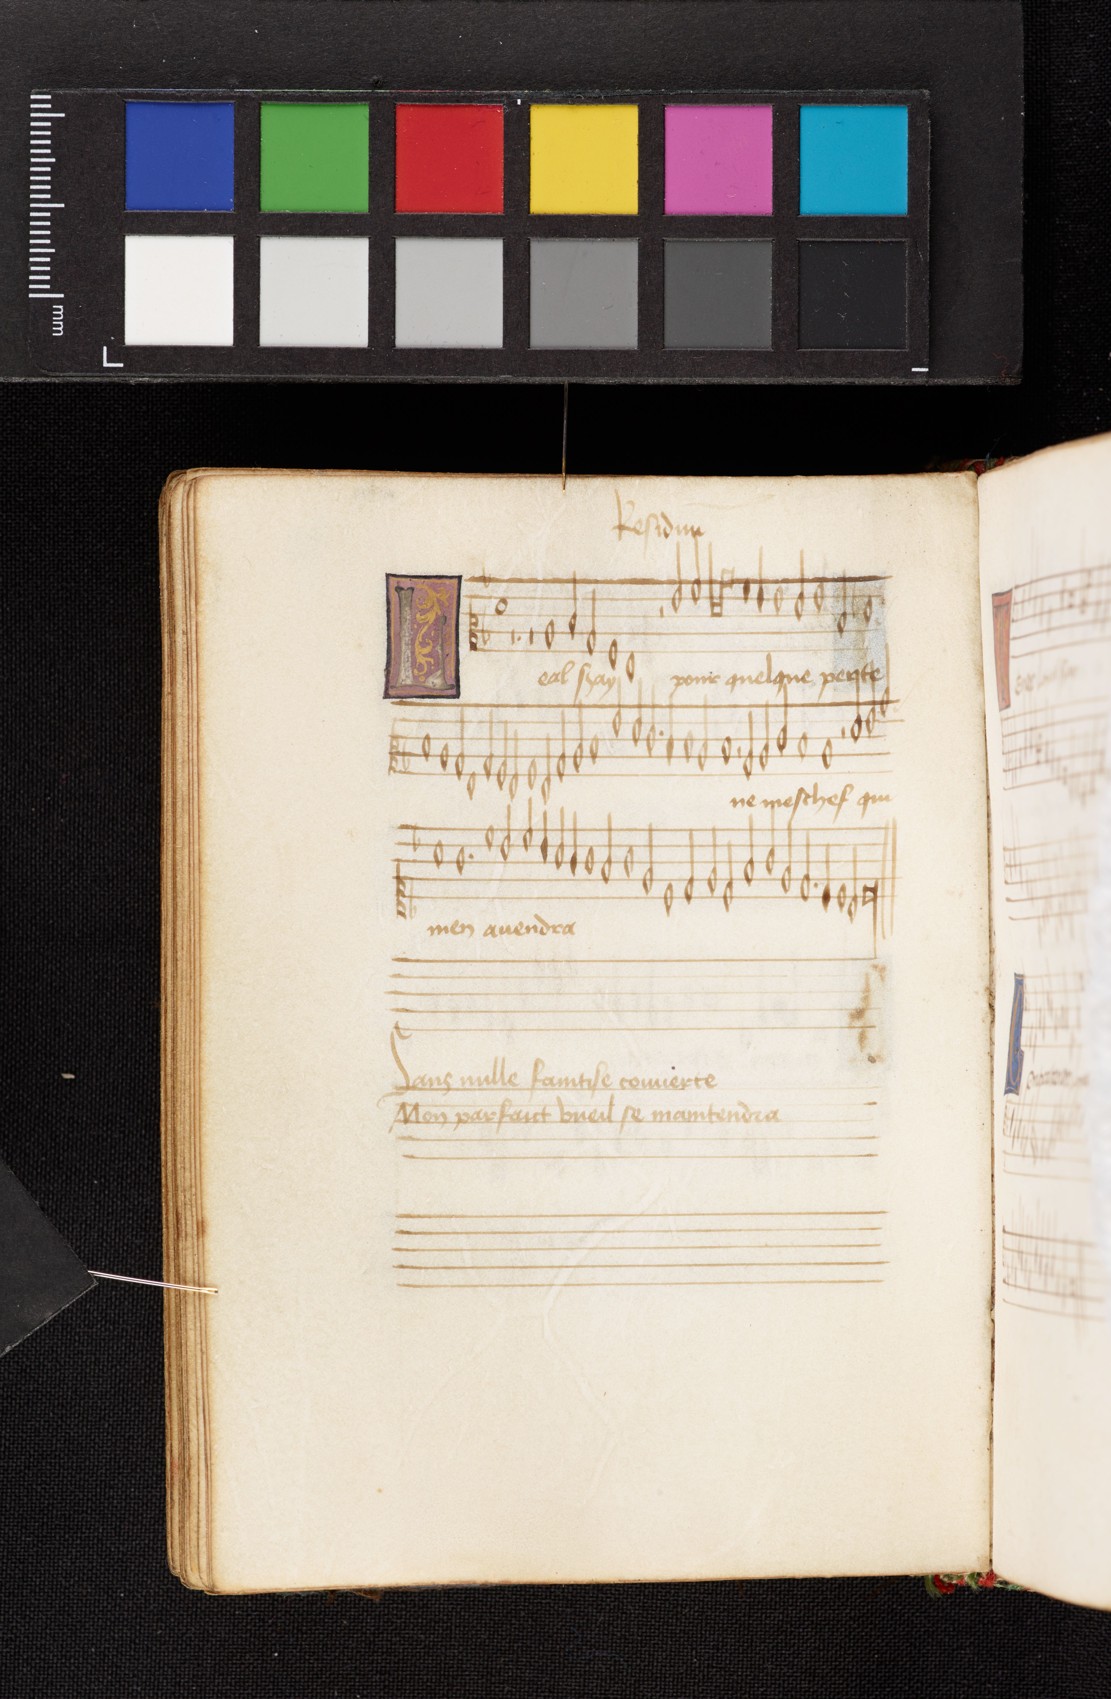 mm
Residuu
Leal seray ponr quelque perte
ne meschef qui
men auendra
Sans nulle faintise couuerte
Mon parfaict vueil se maintendra